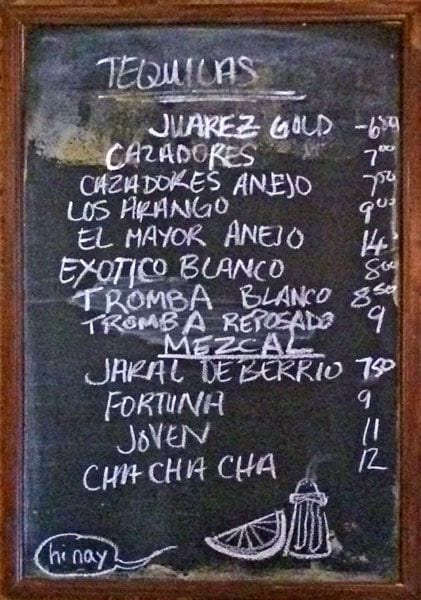 TEQUILAS
JUAREZ GOLD -6.00
CAZADORES 7.00
CAZADORES ANEJO 7.50
LOS ARANGO 9.00
EL MAYOR ANEJO 14
EXOTICO BLANCO 8.00
TROMBA BLANCO 8.50
TROMBA REPOSADO 9
MEZCAL
JARAL DE BERRIO 7.50
FORTUNA 9
JOVEN 11
CHA CHA CHA 12
hi nay